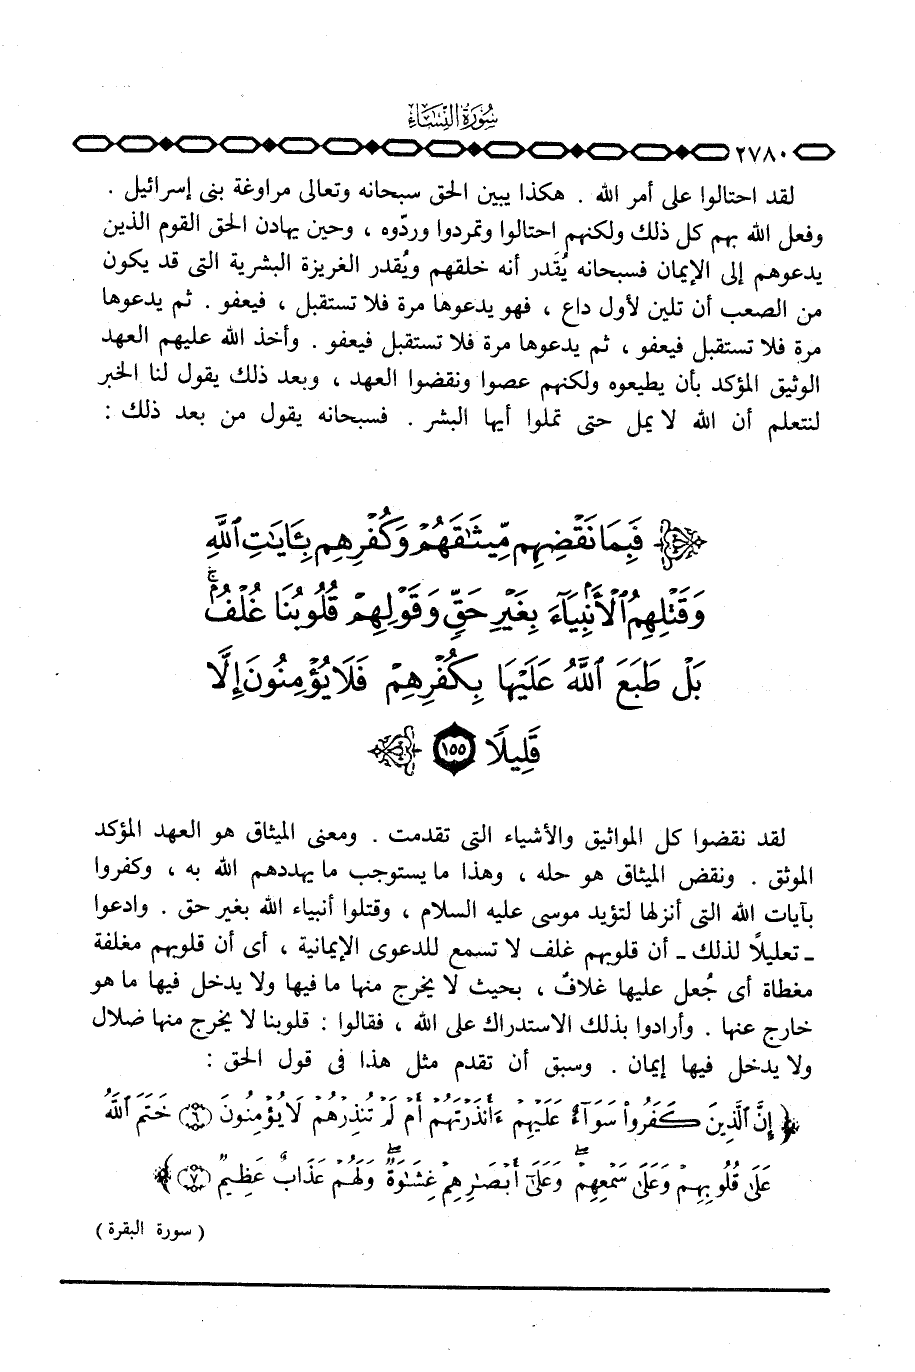 سورة النساء
٢٧٨٠
لقد احتالوا على أمر الله . هكذا يبين الحق سبحانه وتعالى مراوغة بنى إسرائيل .
وفعل الله بهم كل ذلك ولكنهم احتالوا وتمردوا وردّوه ، وحين يهادن الحق القوم الذين
يدعوهم إلى الإيمان فسبحانه يُقَدر أنه خلقهم ويُقدر الغريزة البشرية التى قد يكون
من الصعب أن تلين لأول داع ، فهو يدعوها مرة فلا تستقبل ، فيعفو . ثم يدعوها
مرة فلا تستقبل فيعفو ، ثم يدعوها مرة فلا تستقبل فيعفو . وأخذ الله عليهم العهد
الوثيق المؤكد بأن يطيعوه ولكنهم عصوا ونقضوا العهد ، وبعد ذلك يقول لنا الخبر
لنتعلم أن الله لا يمل حتى تملوا أيها البشر . فسبحانه يقول من بعد ذلك :
فَبِمَا نَقْضِهِم مِّيثَٰقَهُمْ وَكُفْرِهِم بِـَٔايَٰتِ ٱللَّهِ
وَقَتْلِهِمُ ٱلْأَنۢبِيَآءَ بِغَيْرِ حَقٍّ وَقَوْلِهِمْ قُلُوبُنَا غُلْفٌۢ ۚ
بَلْ طَبَعَ ٱللَّهُ عَلَيْهَا بِكُفْرِهِمْ فَلَا يُؤْمِنُونَ إِلَّا
قَلِيلًا ١٥٥
لقد نقضوا كل المواثيق والأشياء التى تقدمت . ومعنى الميثاق هو العهد المؤكد
الموثق . ونقض الميثاق هو حله ، وهذا ما يستوجب ما يهددهم الله به ، وكفروا
بآيات الله التى أنزلها لتؤيد موسى عليه السلام ، وقتلوا أنبياء الله بغير حق . وادعوا
ـ تعليلاً لذلك ـ أن قلوبهم غلف لا تسمع للدعوى الإيمانية ، أى أن قلوبهم مغلفة
مغطاة أى جُعل عليها غلافٌ ، بحيث لا يخرج منها ما فيها ولا يدخل فيها ما هو
خارج عنها . وأرادوا بذلك الاستدراك على الله ، فقالوا : قلوبنا لا يخرج منها ضلال
ولا يدخل فيها إيمان . وسبق أن تقدم مثل هذا فى قول الحق :
﴿ إِنَّ ٱلَّذِينَ كَفَرُوا۟ سَوَآءٌ عَلَيْهِمْ ءَأَنذَرْتَهُمْ أَمْ لَمْ تُنذِرْهُمْ لَا يُؤْمِنُونَ ٦ خَتَمَ ٱللَّهُ
عَلَىٰ قُلُوبِهِمْ وَعَلَىٰ سَمْعِهِمْ ۖ وَعَلَىٰٓ أَبْصَٰرِهِمْ غِشَٰوَةٌ ۖ وَلَهُمْ عَذَابٌ عَظِيمٌ ٧ ﴾
( سورة البقرة )